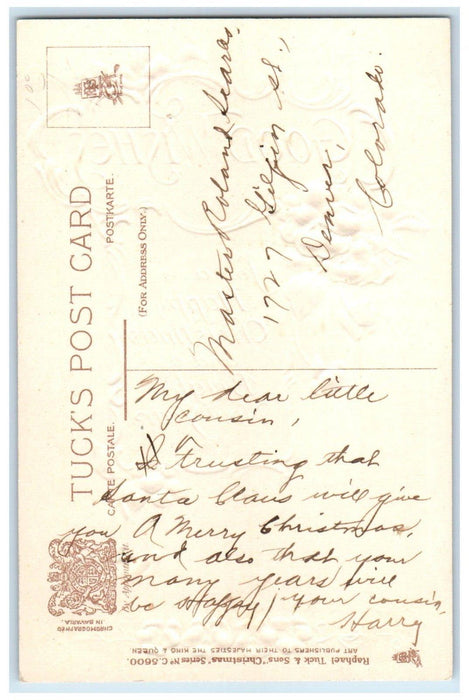 TUCK'S POST CARD
CARTE POSTALE.
POSTKARTE.
(FOR ADDRESS ONLY.)
Master Roland Searls.
1727 Gilpin St.,
Denver,
Colorado.
My dear little
cousin,
Trusting that
Santa Claus will give
you A Merry Christmas,
and also that your
many years will
be Happy, your cousin,
Harry
CHROMOGRAPHED
IN BAVARIA.
Raphael Tuck & Sons' "Christmas" Series No C. 5600.
ART PUBLISHERS TO THEIR MAJESTIES THE KING & QUEEN.
GOOD WISHES